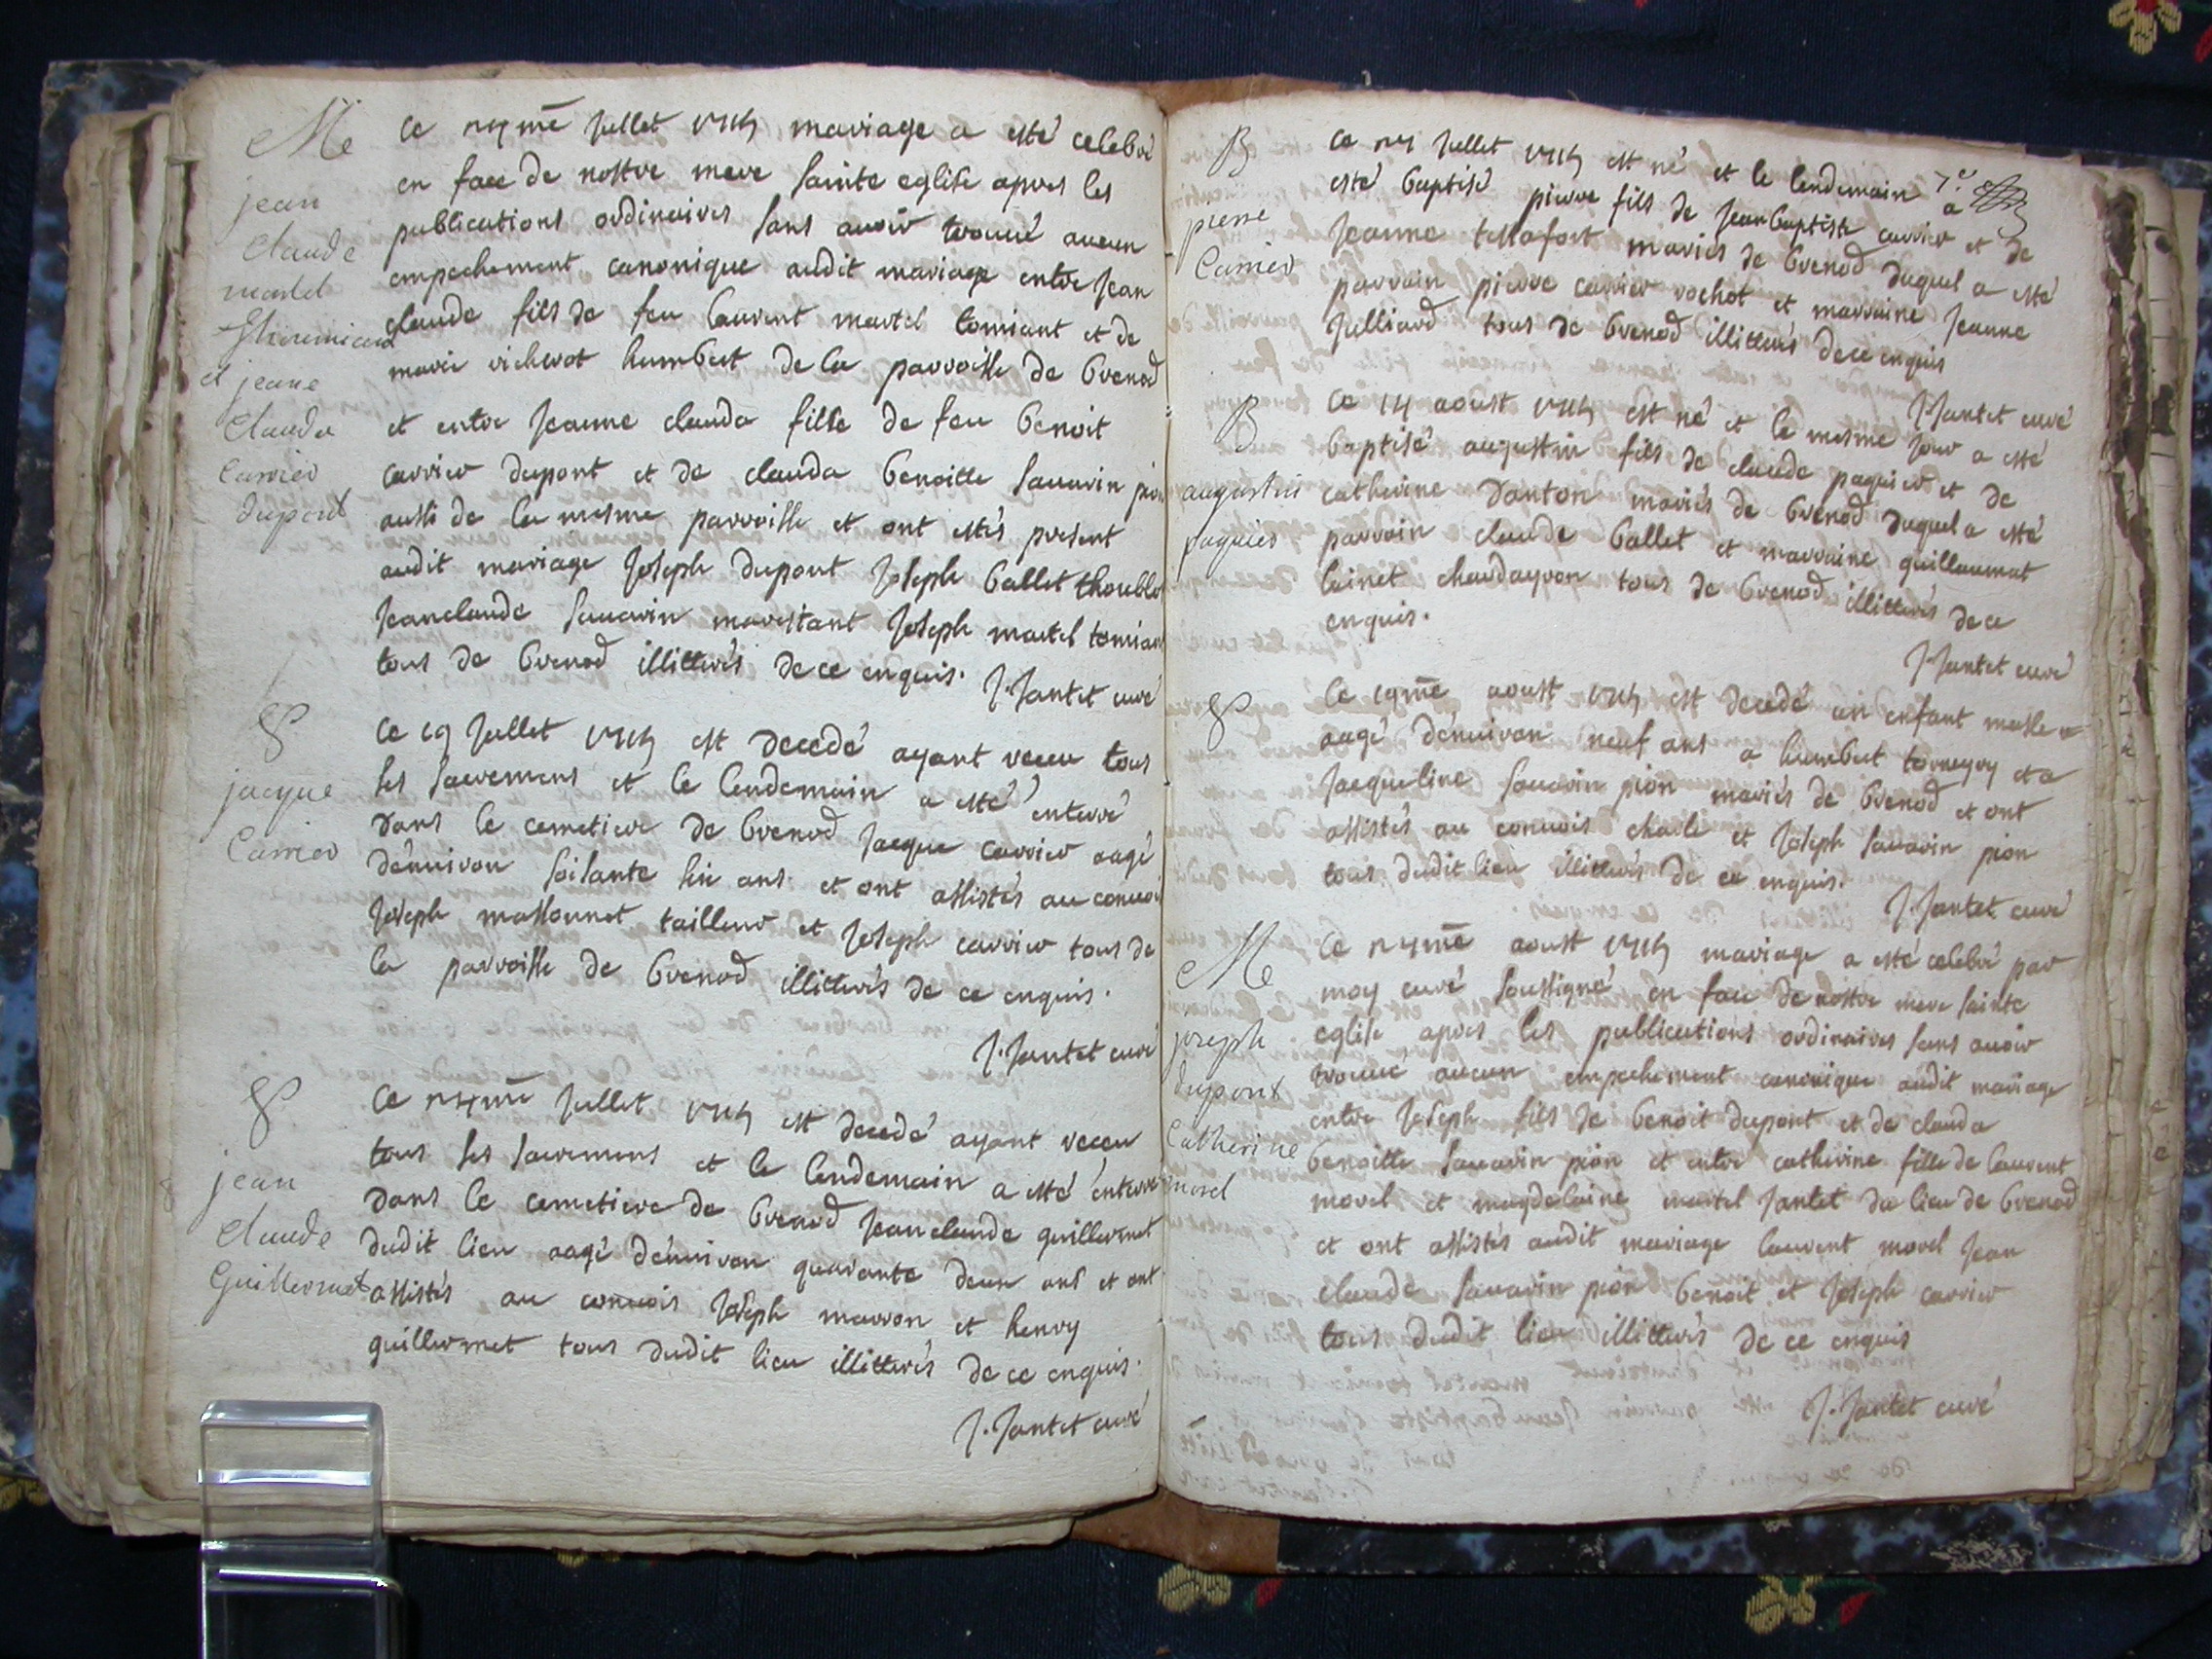 Me
jean
claude
martel
et jeane
clauda
Carrier
dupont
Ce me jullet mariage a esté celebré
en face de nostre mere sainte eglise apres les
publications ordinaires sans avoir trouvé aucun
empechement canonique audit mariage entre jean
claude fils de feu laurent martel tomiant et de
marie richerot humbert de la parroisse de brenod
et entre jeanne clauda fille de feu benoit
carrier dupont et de clauda benoitte savarin pion
aussi de la mesme parroisse et ont estés present
audit mariage joseph dupont joseph ballet
jeanclaude savarin joseph martel tomiant
tous de brenod illitterés de ce enquis.
J. Jantet curé
jacque
Carrier
Ce 19 jullet est decedé ayant receu tous
ses sacremens et le lendemain a esté enterré
dans le cemetiere de brenod jacque carrier aagé
d'environ soisante six ans et ont assistés au convoi
joseph massonnet tailleur et joseph carrier tous de
la parroisse de brenod illitterés de ce enquis.
J. Jantet curé
jean
claude
Guillermet
Ce me jullet est decedé ayant receu
tous ses sacremens et le lendemain a esté enterré
dans le cemetiere de brenod jeanclaude guillermet
dudit lieu aagé d'environ quarante deux ans et ont
assistés au convois joseph marron et henry
guillermet tous dudit lieu illitterés de ce enquis.
J. Jantet curé
B
pierre
Carrier
Ce jullet est né et le lendemain a
esté baptisé pierre fils de jeanbaptiste carrier et de
jeanne tettafort mariés de brenod duquel a esté
parrain pierre carrier rochot et marraine jeanne
julliard tous de brenod illitterés de ce enquis
J. Jantet curé
B
augustin
paquier
Ce 14 aoust est né et le mesme jour a esté
baptisé augustin fils de claude paquier et de
catherine danton mariés de brenod duquel a esté
parrain claude ballet et marraine guillaumat
chardayron tous de brenod illitterés de ce
enquis.
J. Jantet curé
Ce 19me aoust est decedé un enfant masle
aagé d'environ neuf ans a humbert torneyry et a
jacqueline savarin pion mariés de brenod et ont
assistés au convois charle et joseph savarin pion
tous dudit lieu illitterés de ce enquis.
J. Jantet curé
Me
joseph
dupont
Catherine
morel
Ce me aoust mariage a esté celebré par
moy curé soussigné en face de nostre mere sainte
eglise apres les publications ordinaires sans avoir
trouvé aucun empechement canonique audit mariage
entre joseph fils de benoit dupont et de clauda
benoitte savarin pion et entre catherine fille de laurent
morel et magdelaine martel jantet du lieu de brenod
et ont assistés audit mariage laurent morel jean
claude savarin pion benoit et joseph carrier
tous dudit lieu illitterés de ce enquis
J. Jantet curé